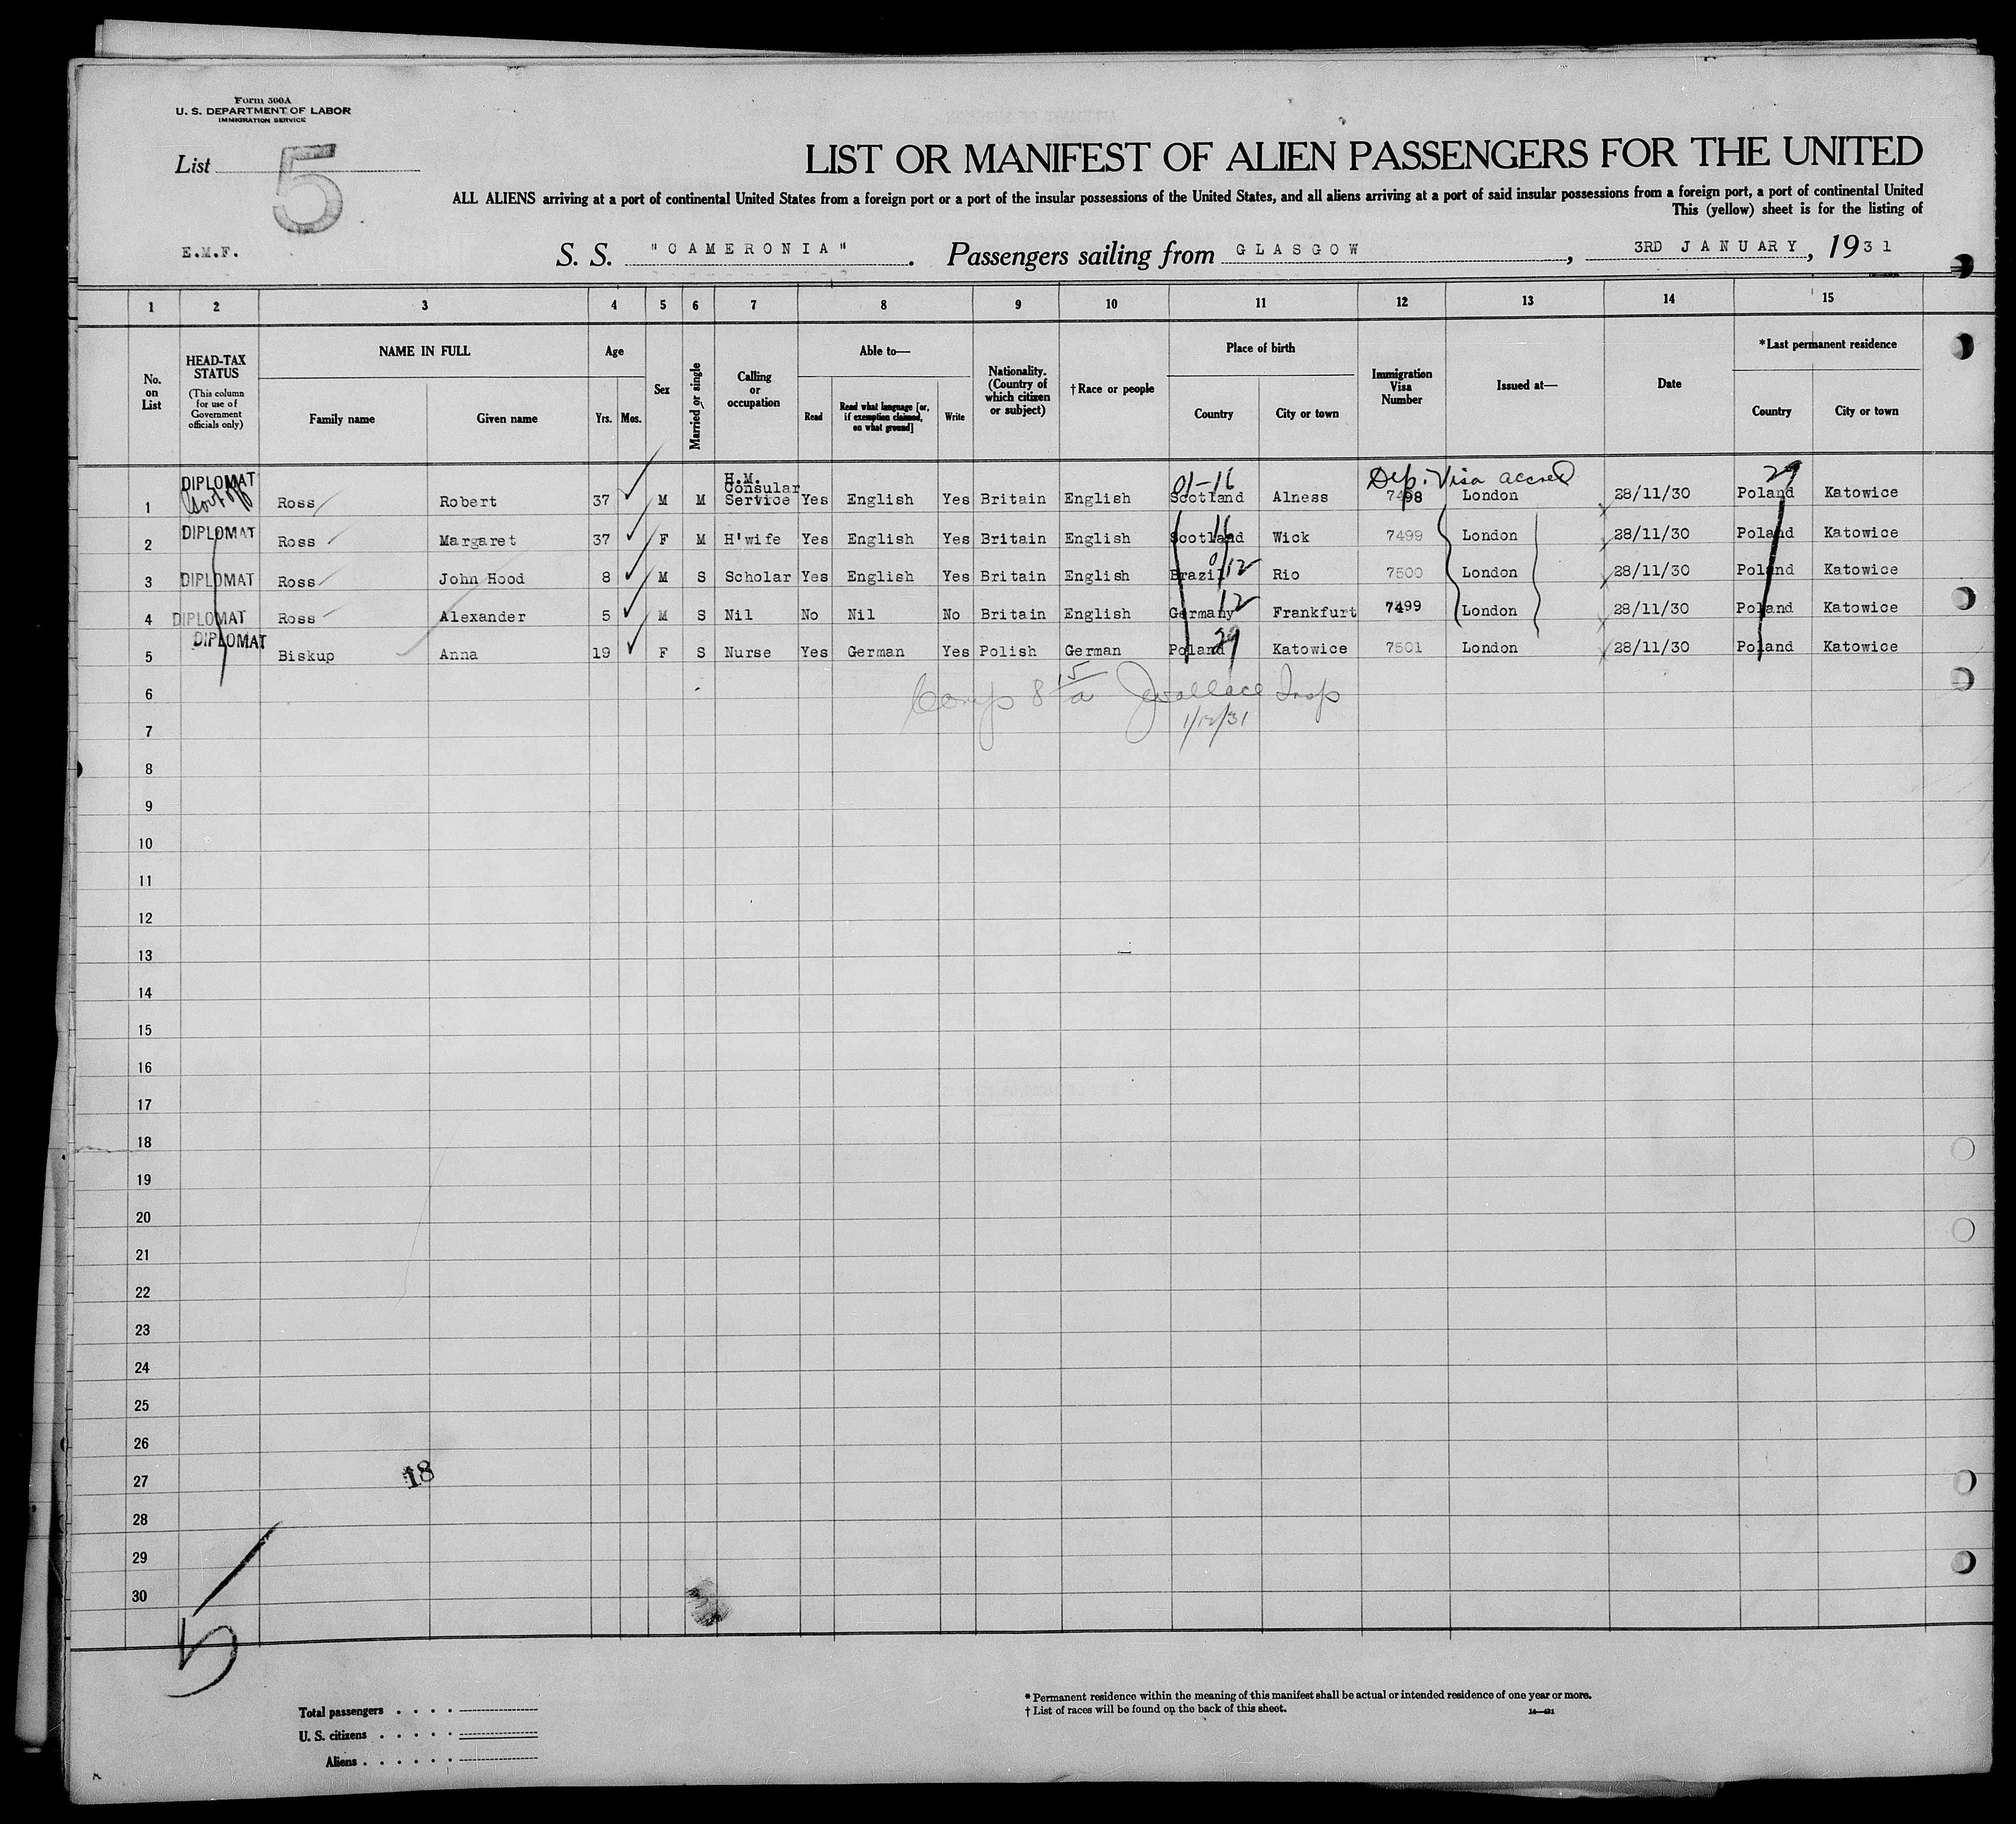 Form 500A
U. S. DEPARTMENT OF LABOR
IMMIGRATION SERVICE
List 5
LIST OR MANIFEST OF ALIEN PASSENGERS FOR THE UNITED
ALL ALIENS arriving at a port of continental United States from a foreign port or a port of the insular possessions of the United States, and all aliens arriving at a port of said insular possessions from a foreign port, a port of continental United
This (yellow) sheet is for the listing of
E.M.F. S. S. "CAMERONIA". Passengers sailing from GLASGOW, 3RD JANUARY, 1931
1 2 3 4 5 6 7 8 9 10 11 12 13 14 15
No. on List
HEAD-TAX STATUS
(This column for use of Government officials only)
NAME IN FULL
Family name Given name
Age
Yrs. Mos.
Sex
Married or single
Calling or occupation
Able to—
Read
Read what language [or, if exemption claimed, on what ground]
Write
Nationality. (Country of which citizen or subject)
† Race or people
Place of birth
Country City or town
Immigration Visa Number
Issued at—
Date
*Last permanent residence
Country City or town
01-16 Dip. Visa accred 29
1 DIPLOMAT Govt off Ross Robert 37 M M H.M. Consular Service Yes English Yes Britain English Scotland Alness 7498 London 28/11/30 Poland Katowice
2 DIPLOMAT Ross Margaret 37 F M H'wife Yes English Yes Britain English Scotland 16 Wick 7499 London 28/11/30 Poland Katowice
3 DIPLOMAT Ross John Hood 8 M S Scholar Yes English Yes Britain English Brazil 0/12 Rio 7500 London 28/11/30 Poland Katowice
4 DIPLOMAT Ross Alexander 5 M S Nil No Nil No Britain English Germany 12 Frankfurt 7499 London 28/11/30 Poland Katowice
5 DIPLOMAT Biskup Anna 19 F S Nurse Yes German Yes Polish German Poland 29 Katowice 7501 London 28/11/30 Poland Katowice
6 Comp 8 15/a J Wallace Insp
7 1/12/31
8
9
10
11
12
13
14
15
16
17
18
19
20
21
22
23
24
25
26
27 18
28
29
30
5
Total passengers . . . .
U. S. citizens . . . . .
Aliens . . . . . .
* Permanent residence within the meaning of this manifest shall be actual or intended residence of one year or more.
† List of races will be found on the back of this sheet.
14—421